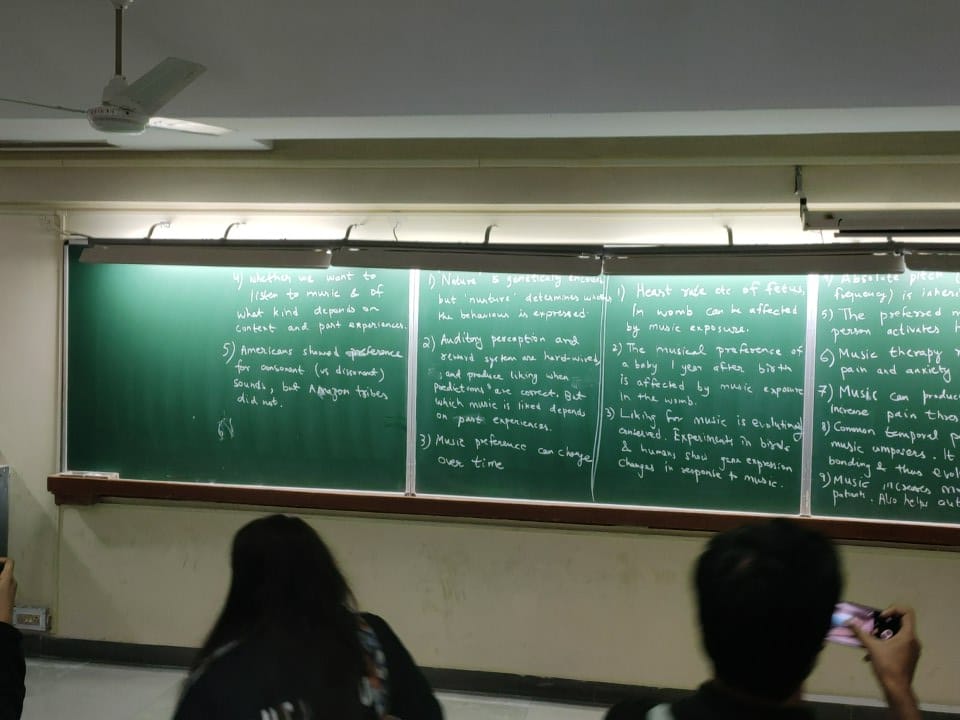 4) Whether we want to
listen to music & of
what kind depends on
context and past experiences.
5) Americans showed preference
for consonant (vs dissonant)
sounds, but Amazon tribes
did not.
1) 'Nature' is genetically
but 'nurture' determines
the behaviour is expressed.
2) Auditory perception and
reward system are hard-wired,
and produce liking when
predictions are correct. But
which music is liked depends
on past experiences.
3) Music preference can change
over time
1) Heart rate etc of fetus,
in womb can be affected
by music exposure.
2) The musical preference of
a baby 1 year after birth
is affected by music exposure
in the womb.
3) Liking for music is
conserved. Experiments in birds
& humans show gene expression
changes in response to music.
4) Absolute pitch
frequency) is
5) The preferred
person activates
6) Music therapy
pain and anxiety
7) Music can
increase pain
8) Common temporal
music
bonding & thus
9) Music increases
patients. Also helps